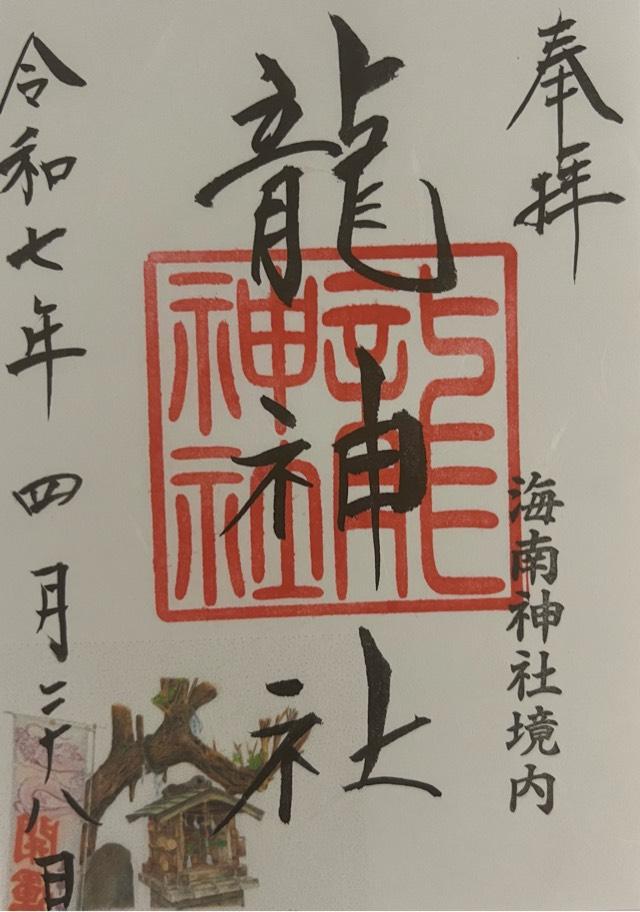 奉拝
海南神社境内
龍神社
龍神社
令和七年四月二十八日
開運